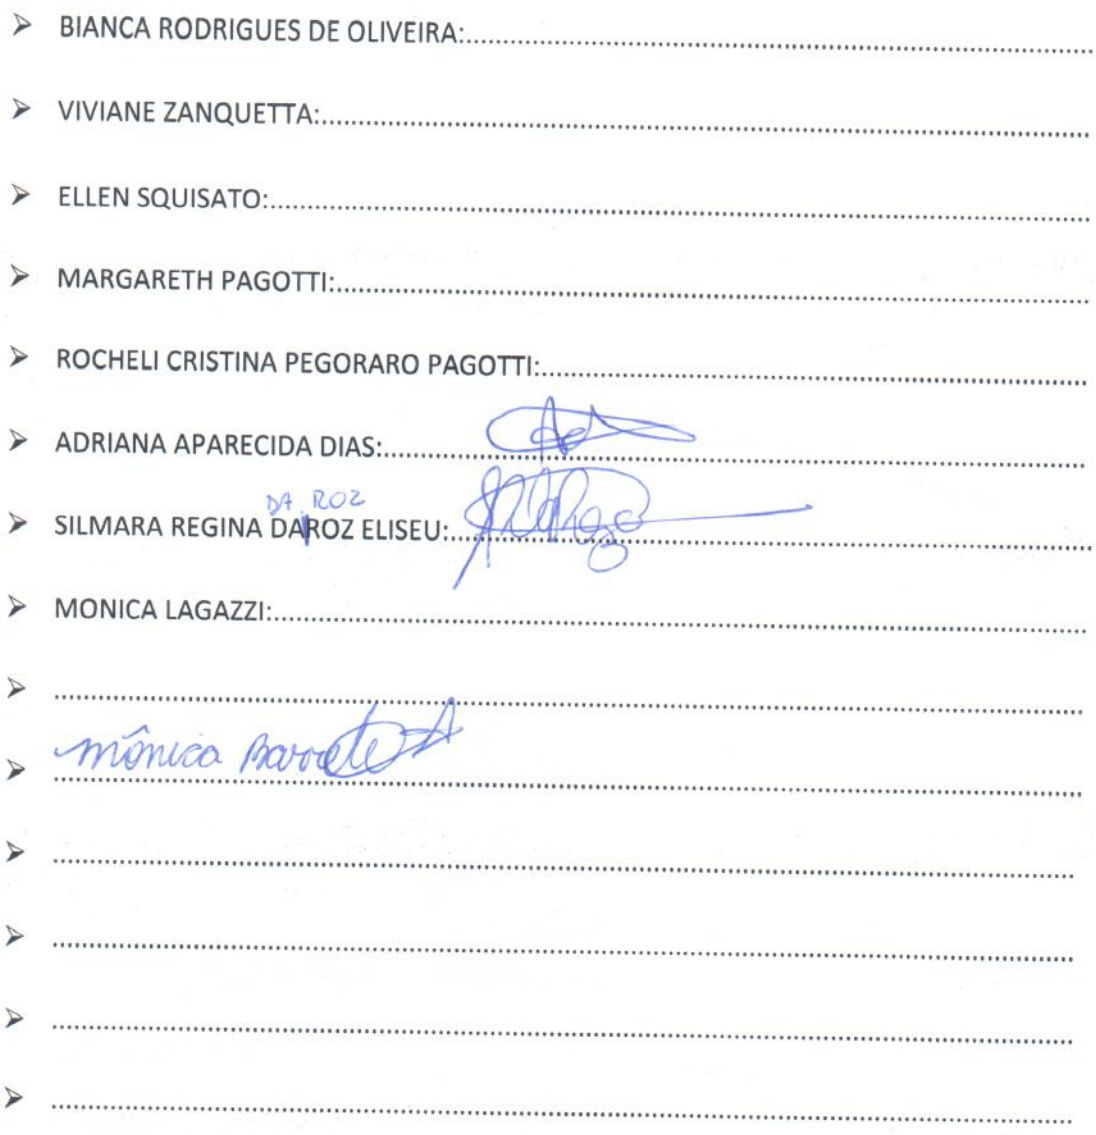 ➢ BIANCA RODRIGUES DE OLIVEIRA:
➢ VIVIANE ZANQUETTA:
➢ ELLEN SQUISATO:
➢ MARGARETH PAGOTTI:
➢ ROCHELI CRISTINA PEGORARO PAGOTTI:
➢ ADRIANA APARECIDA DIAS:
DA ROZ
➢ SILMARA REGINA DAROZ ELISEU:
➢ MONICA LAGAZZI:
➢
➢ Mônica
➢
➢
➢
➢